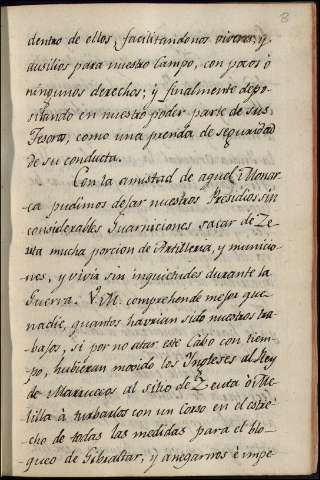 8
dentro de ellos, facilitandonos viveres, y
ausilios para nuestro Campo, con pocos ó
ningunos derechos; y finalmente depo-
sitando en nuestro poder parte de sus
Tesoros, como una prenda de seguridad
de su conducta.
Con la amistad de aquel Monar-
ca pudimos dejar nuestros Presidios sin
considerables Guarniciones sacar de Zeu-
ta mucha porcion de Artilleria, y municio-
nes, y vivir sin inquietudes durante la
Guerra. V. M. comprehende mejor que
nadie, quantos havrian sido nuestros tra-
bajos, si por no atar este Cabo con tiem-
po, hubieran movido los Yngleses al Rey
de Marruecos al sitio de Zeuta ó Me-
lilla à turbarlos con un Corso en el estre-
cho de todas las medidas para el blo-
queo de Gibraltar, y anegarnos è impe-